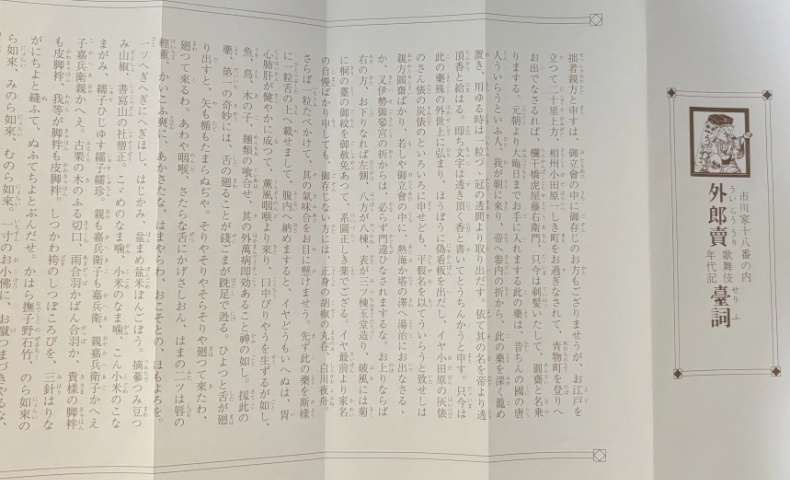 市川家十八番の内
外郎賣
歌舞伎年代記
臺詞
拙者親方と申すは、御立會の中に御存じのお方もござりませうが、お江戸を
立つて二十里上方、相州小田原一しき町をお過ぎなされて、青物町を登りへ
お出でなさるれば、欄干橋虎屋藤右衛門、只今は剃髪いたして、圓齋と名乗
りまする。元朝より大晦日までお手に入れまする此の薬は、昔ちんの國の唐
人ういらうといふ人、我が朝に來り、帝へ參内の折から、此の薬を深く籠め
置き、用ゆる時は一粒づゝ、冠の透間より取り出だす。依て其の名を帝より透
頂香と給はる。即ち文字は透き頂く香と書いてとうちんかうと申す。只今は
此の薬殊の外世上に弘まり、ほうぼうに偽看板を出だし、イヤ小田原の灰俵
のさん俵の炭俵のといろいろに申せども、平假名を以てういらうと致せしは
親方圓齋ばかり、若しや御立會の中に、熱海か塔の澤へ湯治にお出なさる、
か、又伊勢御參宮の折からは、必らず門違ひなされまするな。お上りならば
右の方、お下りなれば左側、八方が八棟、表が三ツ棟玉堂造り、破風には菊
に桐の薹の御紋を御赦免あつて、系圖正しき薬でござる。イヤ最前より家名
の自慢ばかり申しても、御存じない方には、正身の胡椒の丸呑、白川夜舟。
さらば一粒たべかけて、其の氣味合をお目に懸けませう。先ず此の薬を斯様
に一粒舌の上へ載せまして、腹内へ納めますると、イヤどうもいへぬは、胃
心肺肝が健やかに成つて、薫風咽喉より來り、口中びりやうを生ずるが如し、
魚、鳥、木の子、麺類の喰合せ、其の外萬病即効あること神の如し。扨此の
薬、第一の奇妙には、舌の廻ることが錢ごまが跣足で逃る。ひよつと舌が廻
り出すと、矢も楯もたまらぬぢや。そりやそりやそらそりや廻つて來たわ、
廻つて來るわ。あわや咽喉、さたらな舌にかげさしおん、はまの二ツは唇の
輕重、かいこふ爽に、あかさたな、はまやらわ、おこそとの、ほもよろを。
一ツへぎへぎにへぎほし、はじかみ、盆まめ盆米ぼんごぼう、摘蓼つみ豆つ
み山椒、書寫山の社僧正。こゞめのなま噛、小米のなま噛、こん小米のこな
まがみ、繻子ひじゆす繻子繻珍。親も嘉兵衛子も嘉兵衛、親嘉兵衛子かへえ
子嘉兵衛親かへえ。古栗の木のふる切口、雨合羽かばん合羽か、貴様の脚袢
も皮脚袢、我等が脚袢も皮脚袢。しつかわ袴のしつぽころびを、三針はりな
がにちよと縫ふて、ぬふてちよとぶんだせ。かはら撫子野石竹、のら如來の
ら如來、みのら如來、むのら如來。一寸のお小佛に、お蹴つまづきやるな、